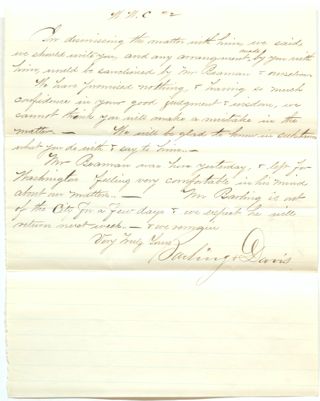 W. W. C #2
In dismissing the matter with him, we said
we should write you, and any arrangement made by you with
him, would be sanctioned by Mr Beaman & ourselves.
We have promised nothing, & having so much
confidence in your good judgment & wisdom, we
cannot think you will make a mistake in the
matter. — We will be glad to know in
what you do with & say to him. —
Mr Beaman was here yesterday, & left for
Washington feeling very comfortable in his mind
about our matter. — Mr Barling is out
of the City for a few days & we expect he will
return next week. — & we remain
Very Truly Yours
Barling & Davis